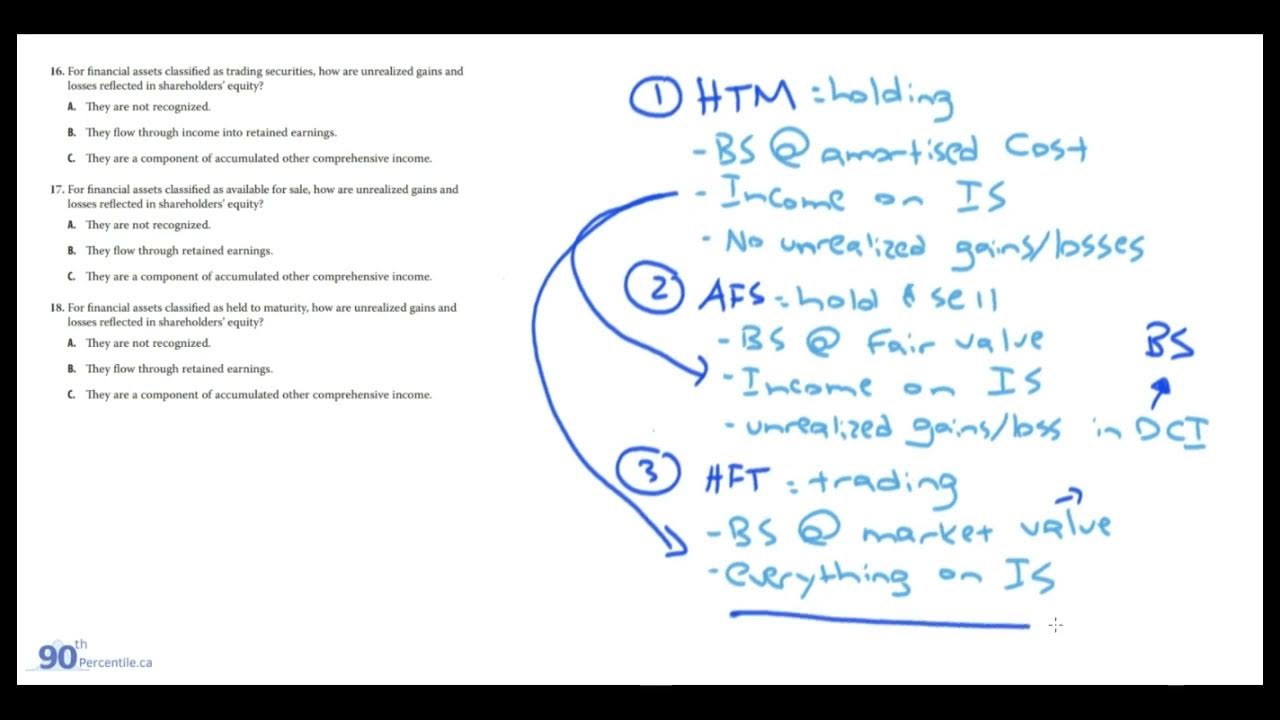 16. For financial assets classified as trading securities, how are unrealized gains and
losses reflected in shareholders' equity?
A. They are not recognized.
B. They flow through income into retained earnings.
C. They are a component of accumulated other comprehensive income.
17. For financial assets classified as available for sale, how are unrealized gains and
losses reflected in shareholders' equity?
A. They are not recognized.
B. They flow through retained earnings.
C. They are a component of accumulated other comprehensive income.
18. For financial assets classified as held to maturity, how are unrealized gains and
losses reflected in shareholders' equity?
A. They are not recognized.
B. They flow through retained earnings.
C. They are a component of accumulated other comprehensive income.
1 HTM = holding
- BS @ amortised Cost
- Income on IS
- No unrealized gains/losses
2 AFS = hold & sell
- BS @ Fair value
BS
- Income on IS
- unrealized gains/loss in OCI
3 HFT = trading
- BS @ market value
- everything on IS
90th Percentile.ca